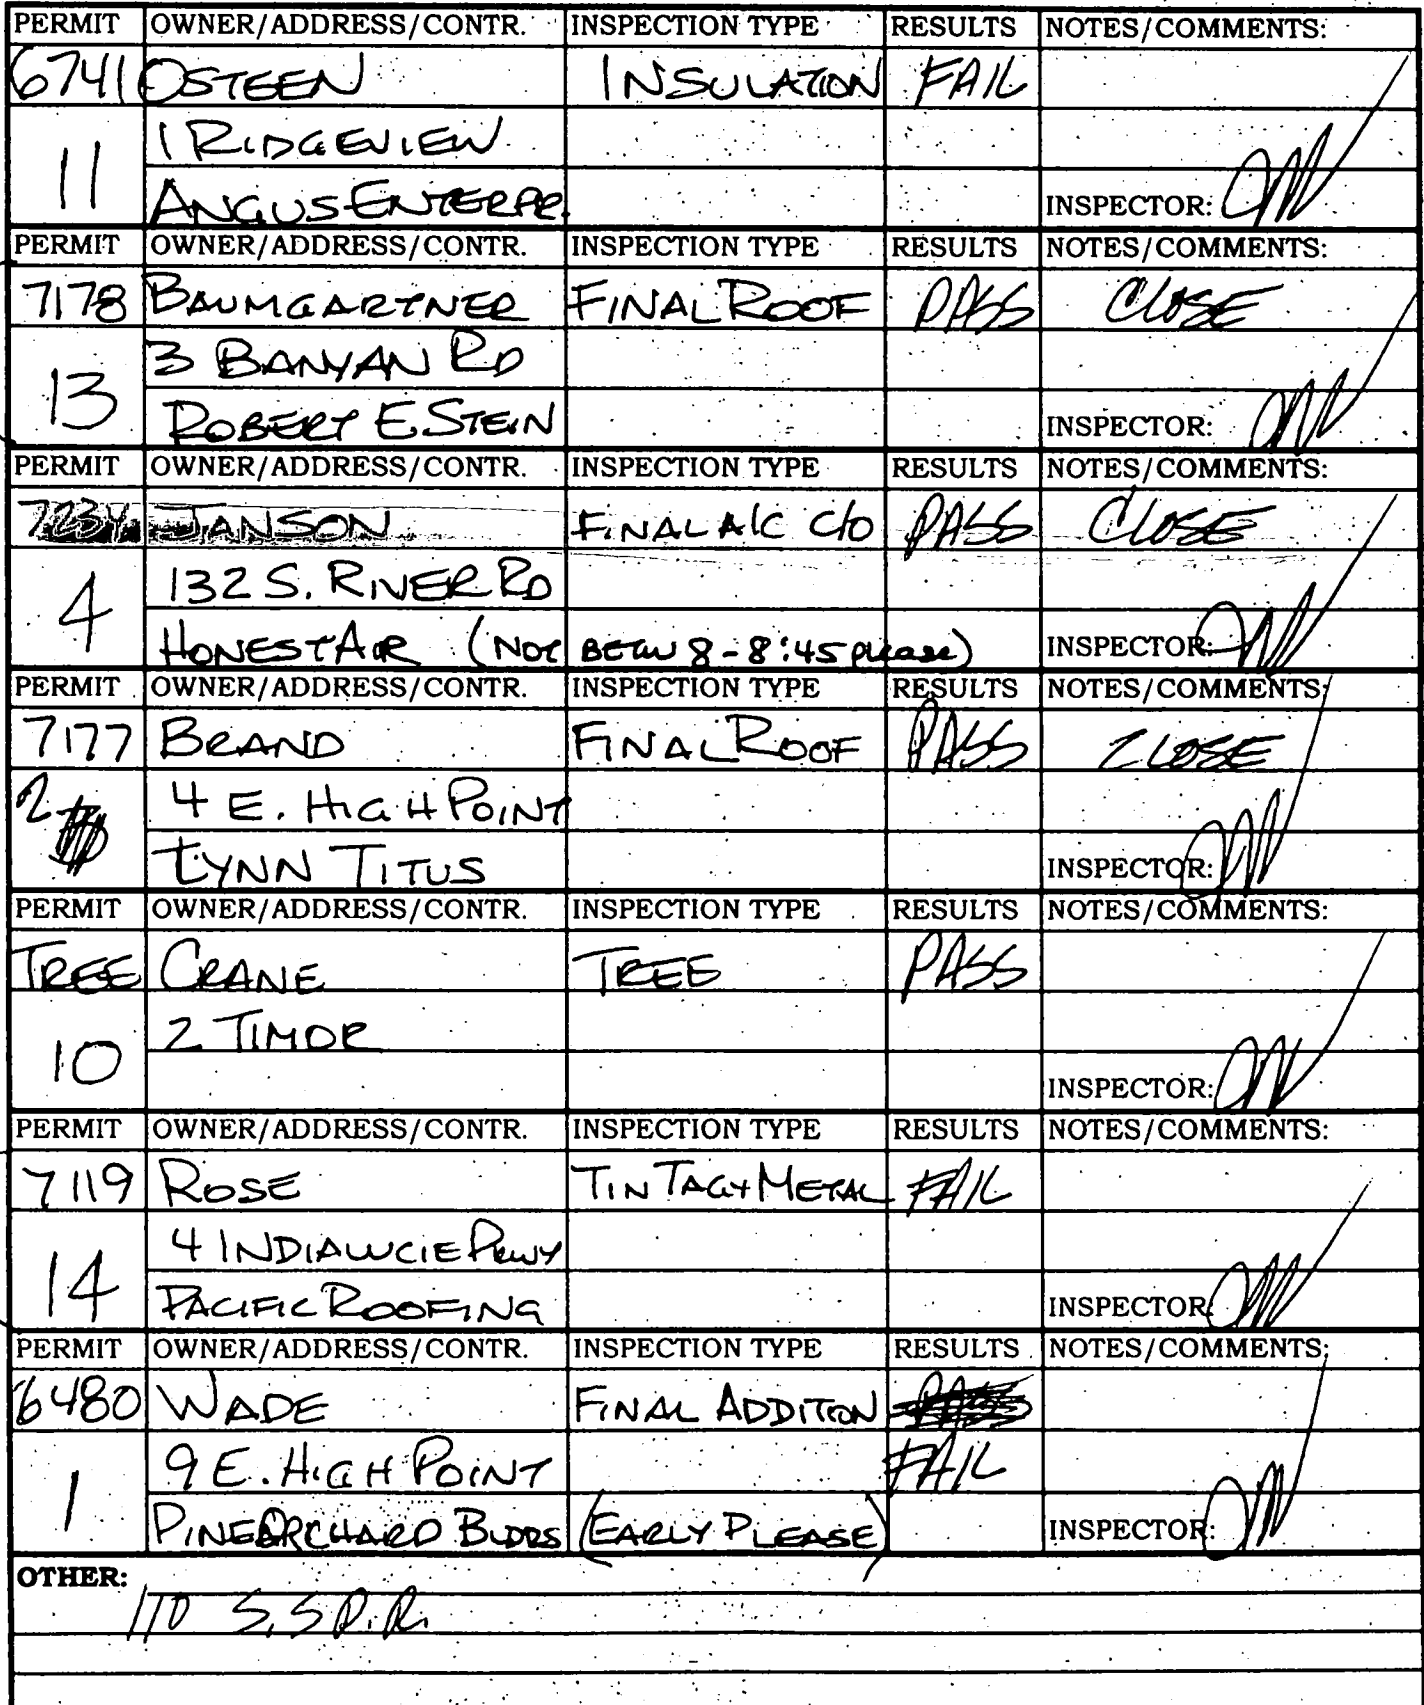 PERMIT OWNER/ADDRESS/CONTR. INSPECTION TYPE RESULTS NOTES/COMMENTS:
6741 OSTEEN INSULATION FAIL
1 RIDGEVIEW
11
ANGUS ENTERPR. INSPECTOR:
PERMIT OWNER/ADDRESS/CONTR. INSPECTION TYPE RESULTS NOTES/COMMENTS:
7178 BAUMGARTNER FINAL ROOF PASS CLOSE
3 BANYAN RD
13
ROBERT E STEIN INSPECTOR:
PERMIT OWNER/ADDRESS/CONTR. INSPECTION TYPE RESULTS NOTES/COMMENTS:
7234 JANSON FINAL A/C C/O PASS CLOSE
132 S. RIVER RD
4
HONEST AIR (NOT BETW 8-8:45 please) INSPECTOR:
PERMIT OWNER/ADDRESS/CONTR. INSPECTION TYPE RESULTS NOTES/COMMENTS:
7177 BRAND FINAL ROOF PASS CLOSE
2 4 E. HIGH POINT
LYNN TITUS INSPECTOR:
PERMIT OWNER/ADDRESS/CONTR. INSPECTION TYPE RESULTS NOTES/COMMENTS:
TREE CRANE TREE PASS
2 TIMOR
10
INSPECTOR:
PERMIT OWNER/ADDRESS/CONTR. INSPECTION TYPE RESULTS NOTES/COMMENTS:
7119 ROSE TIN TAG + METAL FAIL
4 INDIALUCIE PKWY
14
PACIFIC ROOFING INSPECTOR:
PERMIT OWNER/ADDRESS/CONTR. INSPECTION TYPE RESULTS NOTES/COMMENTS:
6480 WADE FINAL ADDITION PASS
9 E. HIGH POINT FAIL
1
PINEORCHARD BLDRS (EARLY PLEASE) INSPECTOR:
OTHER:
110 S. S.P.R.